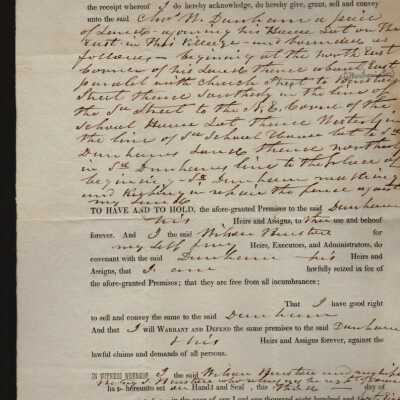 the receipt whereof I do hereby acknowledge, do hereby give, grant, sell and convey
unto the said Chas. W. Dunham a piece
of Land adjoining his House Lot on the
East in this Village and bounded as
follows, beginning at the north East
Corner of his Land thence about East
parallel with Church Street to
Street thence Southerly in the line of
the Sd Street to the S. E. Corner of the
School House Lot thence Westerly in
the line of Sd School House Lot to Sd
Dunhams Land thence northerly
in Sd Dunhams line to the place of
beginning Sd Dunham making
and Keeping in repair the fence against
my Land
TO HAVE AND TO HOLD, the afore-granted Premises to the said Dunham
his Heirs and Assigns, to their use and behoof
forever. And I the said for
my self & my Heirs, Executors, and Administrators, do
covenant with the said Dunham his Heirs and
Assigns, that I am lawfully seized in fee of
the afore-granted Premises; that they are free from all incumbrances;
That I have good right
to sell and convey the same to the said Dunham
And that I will WARRANT AND DEFEND the same premises to the said Dunham
& his Heirs and Assigns forever, against the
lawful claims and demands of all persons.
IN WITNESS WHEREOF, I the said and
ha hereunto set Hand and Seal, this day of
in the year of our Lord one thousand eight hundred and